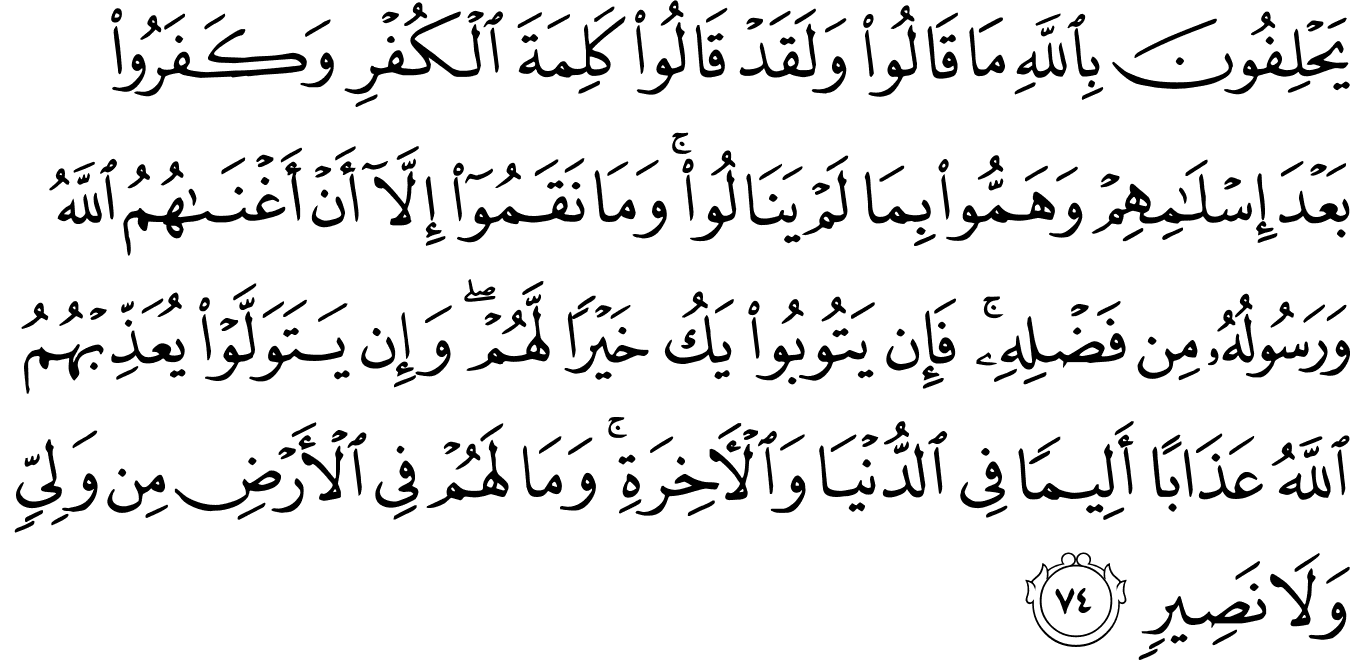 يَحْلِفُونَ بِٱللَّهِ مَا قَالُوا۟ وَلَقَدْ قَالُوا۟ كَلِمَةَ ٱلْكُفْرِ وَكَفَرُوا۟
بَعْدَ إِسْلَـٰمِهِمْ وَهَمُّوا۟ بِمَا لَمْ يَنَالُوا۟ ۚ وَمَا نَقَمُوٓا۟ إِلَّآ أَنْ أَغْنَىٰهُمُ ٱللَّهُ
وَرَسُولُهُۥ مِن فَضْلِهِۦ ۚ فَإِن يَتُوبُوا۟ يَكُ خَيْرًا لَّهُمْ ۖ وَإِن يَتَوَلَّوْا۟ يُعَذِّبْهُمُ
ٱللَّهُ عَذَابًا أَلِيمًا فِى ٱلدُّنْيَا وَٱلْـَٔاخِرَةِ ۚ وَمَا لَهُمْ فِى ٱلْأَرْضِ مِن وَلِىٍّ
وَلَا نَصِيرٍ ٧٤